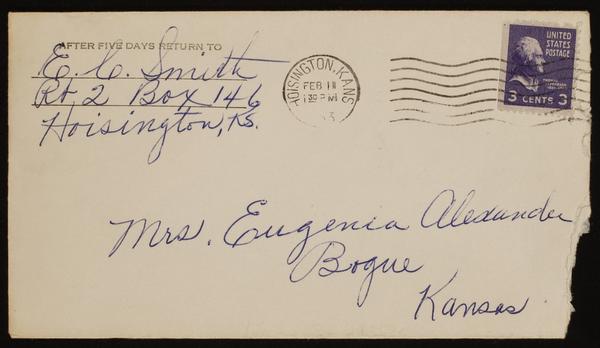 AFTER FIVE DAYS RETURN TO
E. C. Smith
Rt 2 Box 146
Hoisington, Ks.
HOISINGTON, KANS
FEB 11
1 30 PM
UNITED
STATES
POSTAGE
3 CENTS 3
Mrs. Eugenia Alexander
Bogue
Kansas